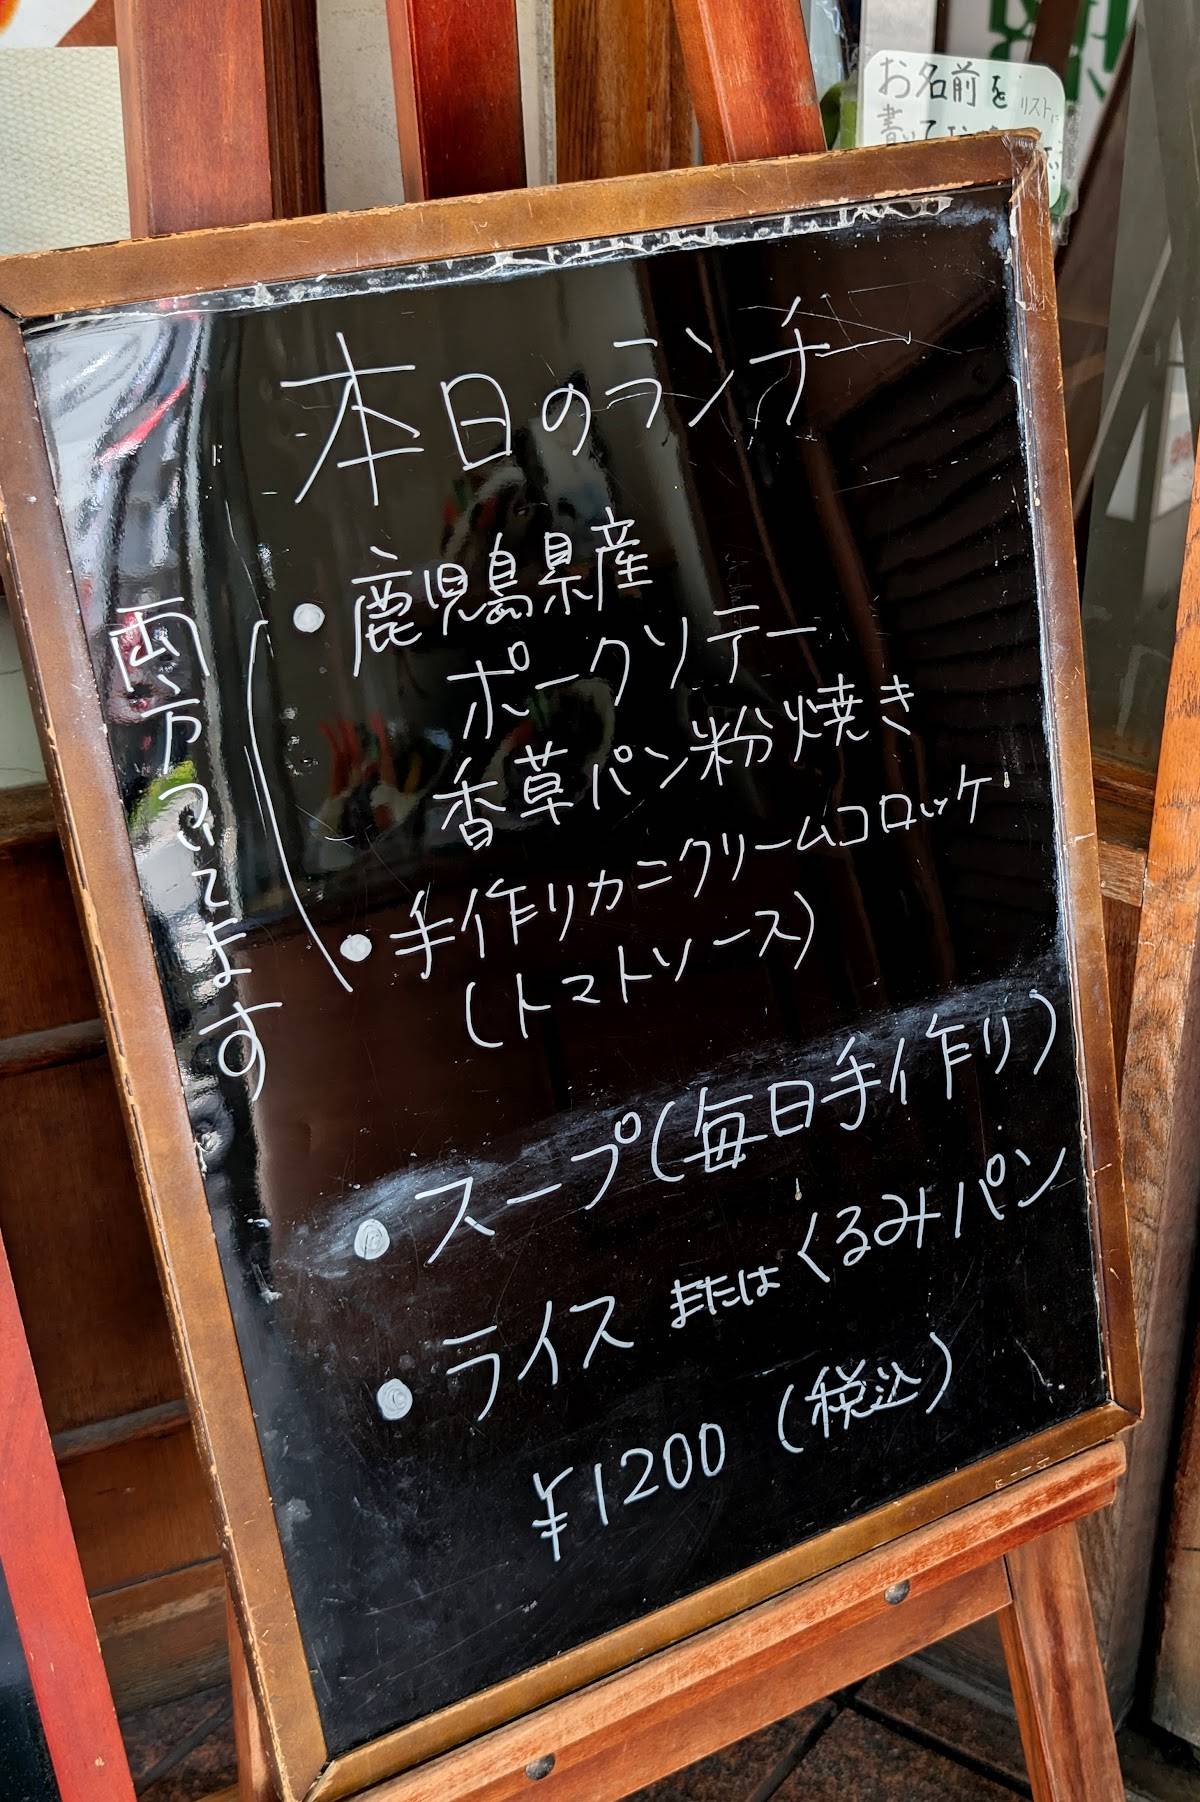 お名前をリストに
書いて
本日のランチ
両方ついてます
●鹿児島県産
ポークソテー
香草パン粉焼き
●手作りカニクリームコロッケ
(トマトソース)
●スープ(毎日手作り)
●ライスまたはくるみパン
¥1200(税込)